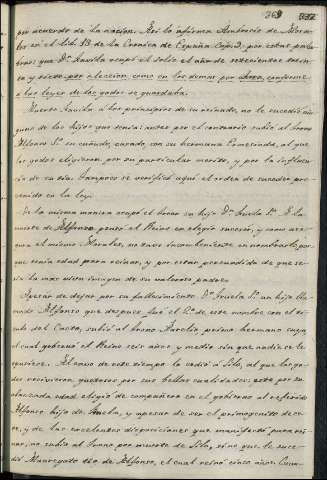 por acuerdo de la nacion. Asi lo afirma Ambrocio de Mora-
les en el Lib. 13 de la Cronica de España Cap. por estas pala-
bras: que Dn. Favila ocupó el solio el año de setecientos trein-
ta y siete por eleccion, como en los demas por ahora, conforme
a las leyes de los godos se guardaba.
Muerto Favila à los principios de su reinado, no le sucedió nin-
guno de los hijos que tenia; antes por el contrario subió al trono
Alfonso 1º su cuñado, casado con su hermana Ermesinda, al que
los godos eligieron por su particular merito, y por la influen-
cia de su tio. Tampoco se verificó aqui el orden de suceder pre-
venido en la ley.
De la misma manera ocupó el trono su hijo Dn. Fruela 1º A la
muerte de Alfonso pensó el Reino en elegir sucesor, y como ase-
gura el mismo Morales, no tuvo inconveniente en nombrarle por-
que tenia edad para reinar, y por estar persuadido de que se-
ria la mas viva imagen de su valeroso padre.
Apesar de dejar por su fallecimiento Dn. Fruela 1º un hijo lla-
mado Alfonso que despues fué el 2º de este nombre con el ti-
tulo del Casto, subió al trono Aurelio primo hermano suyo,
el cual gobernó el Reino seis años y medio sin que nadie se le
opusiere. Al cavo de este tiempo le cedió à Silo, al que los go-
dos recivieron gustosos por sus bellas cualidades; este por su
abanzada edad eligio de compañero en el gobierno al referido
Alfonso hijo de Fruela, y apesar de ser el primogenito de es-
te, y de las excelentes disposiciones que manifestó para rei-
nar, no subió al trono por muerte de Silo, sino que le suce-
dió Mauregato tio de Alfonso, el cual reinó cinco años. Cum-